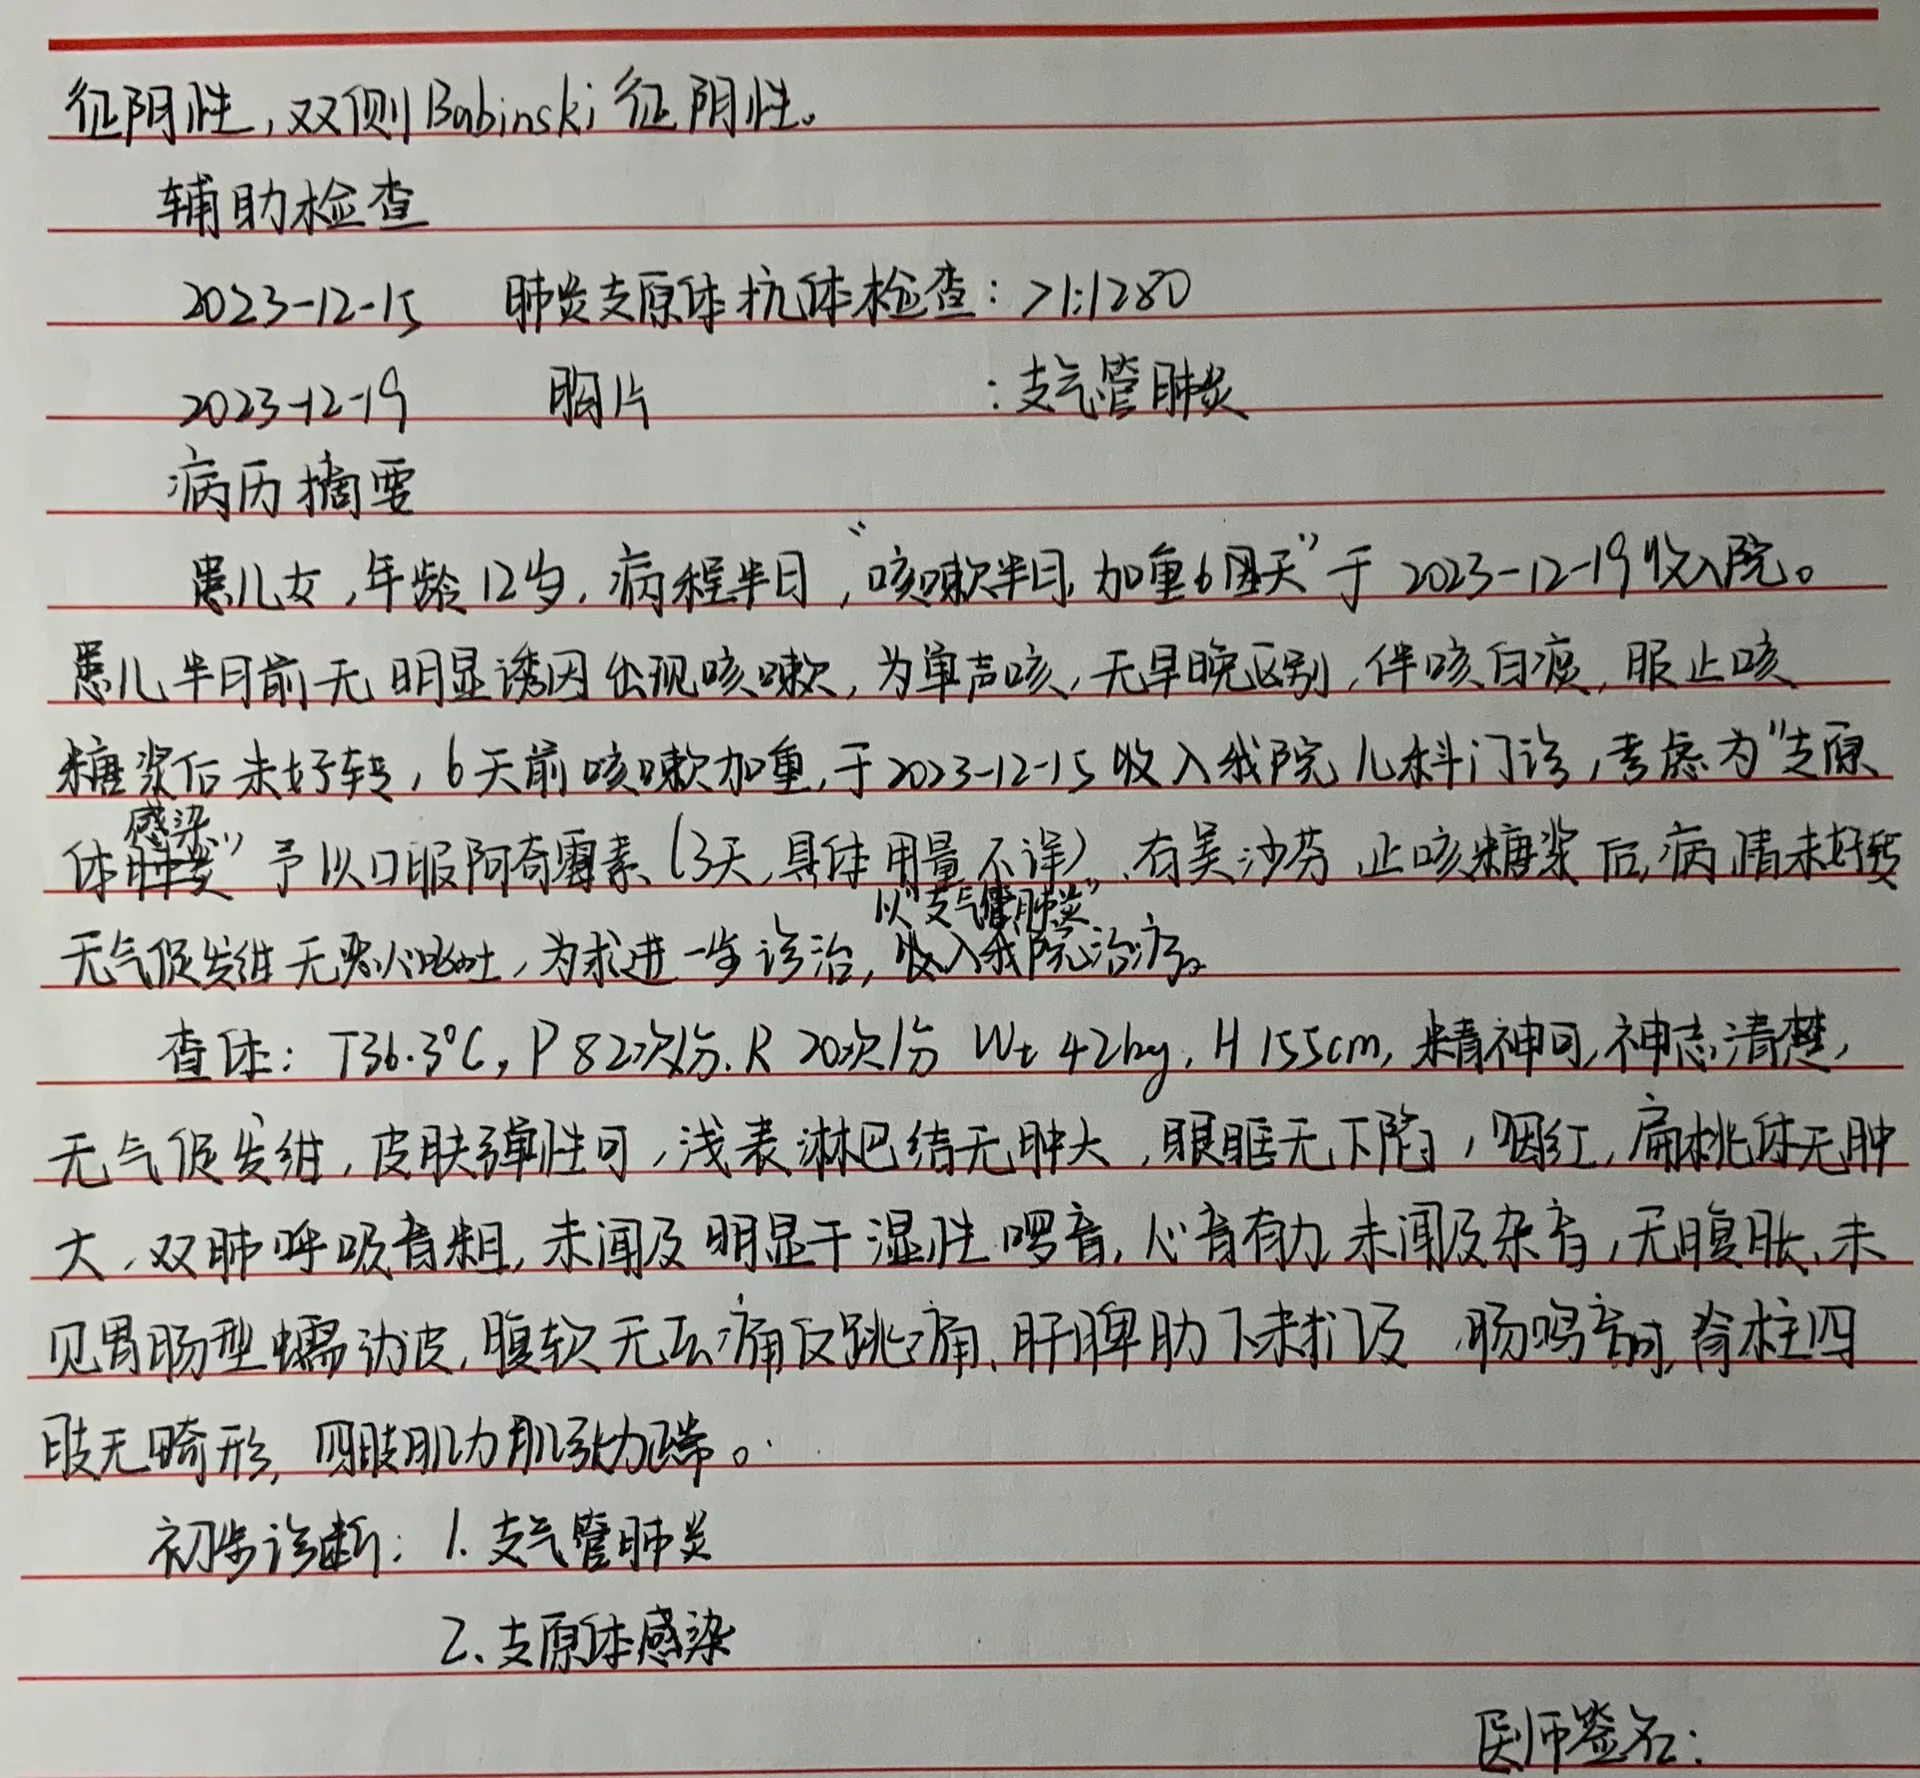 征阴性,双侧Babinski征阴性。
辅助检查
2023-12-15 肺炎支原体抗体检查: >1:1280
2023-12-19 胸片 :支气管肺炎
病历摘要
患儿女,年龄12岁,病程半月,“咳嗽半月,加重6天”于2023-12-19收入院。
患儿半月前无明显诱因出现咳嗽,为单声咳,无早晚区别,伴咳白痰,服止咳
糖浆后未好转,6天前咳嗽加重,于2023-12-15收入我院儿科门诊,考虑为“支原
体感染”予以口服阿奇霉素(3天,具体用量不详)、右美沙芬止咳糖浆后,病情未好转
无气促发绀无恶心呕吐,为求进一步诊治,以“支气管肺炎”收入我院治疗。
查体: T36.3℃, P 82次/分. R 20次/分 Wt 42kg, H 155cm, 精神可,神志清楚,
无气促发绀,皮肤弹性可,浅表淋巴结无肿大,眼眶无下陷,咽红,扁桃体无肿
大,双肺呼吸音粗,未闻及明显干湿性啰音,心音有力,未闻及杂音,无腹胀,未
见胃肠型蠕动波,腹软无压痛反跳痛,肝脾肋下未扪及 肠鸣音可,脊柱四
肢无畸形,四肢肌力肌张力正常。
初步诊断: 1.支气管肺炎
2.支原体感染
医师签名: